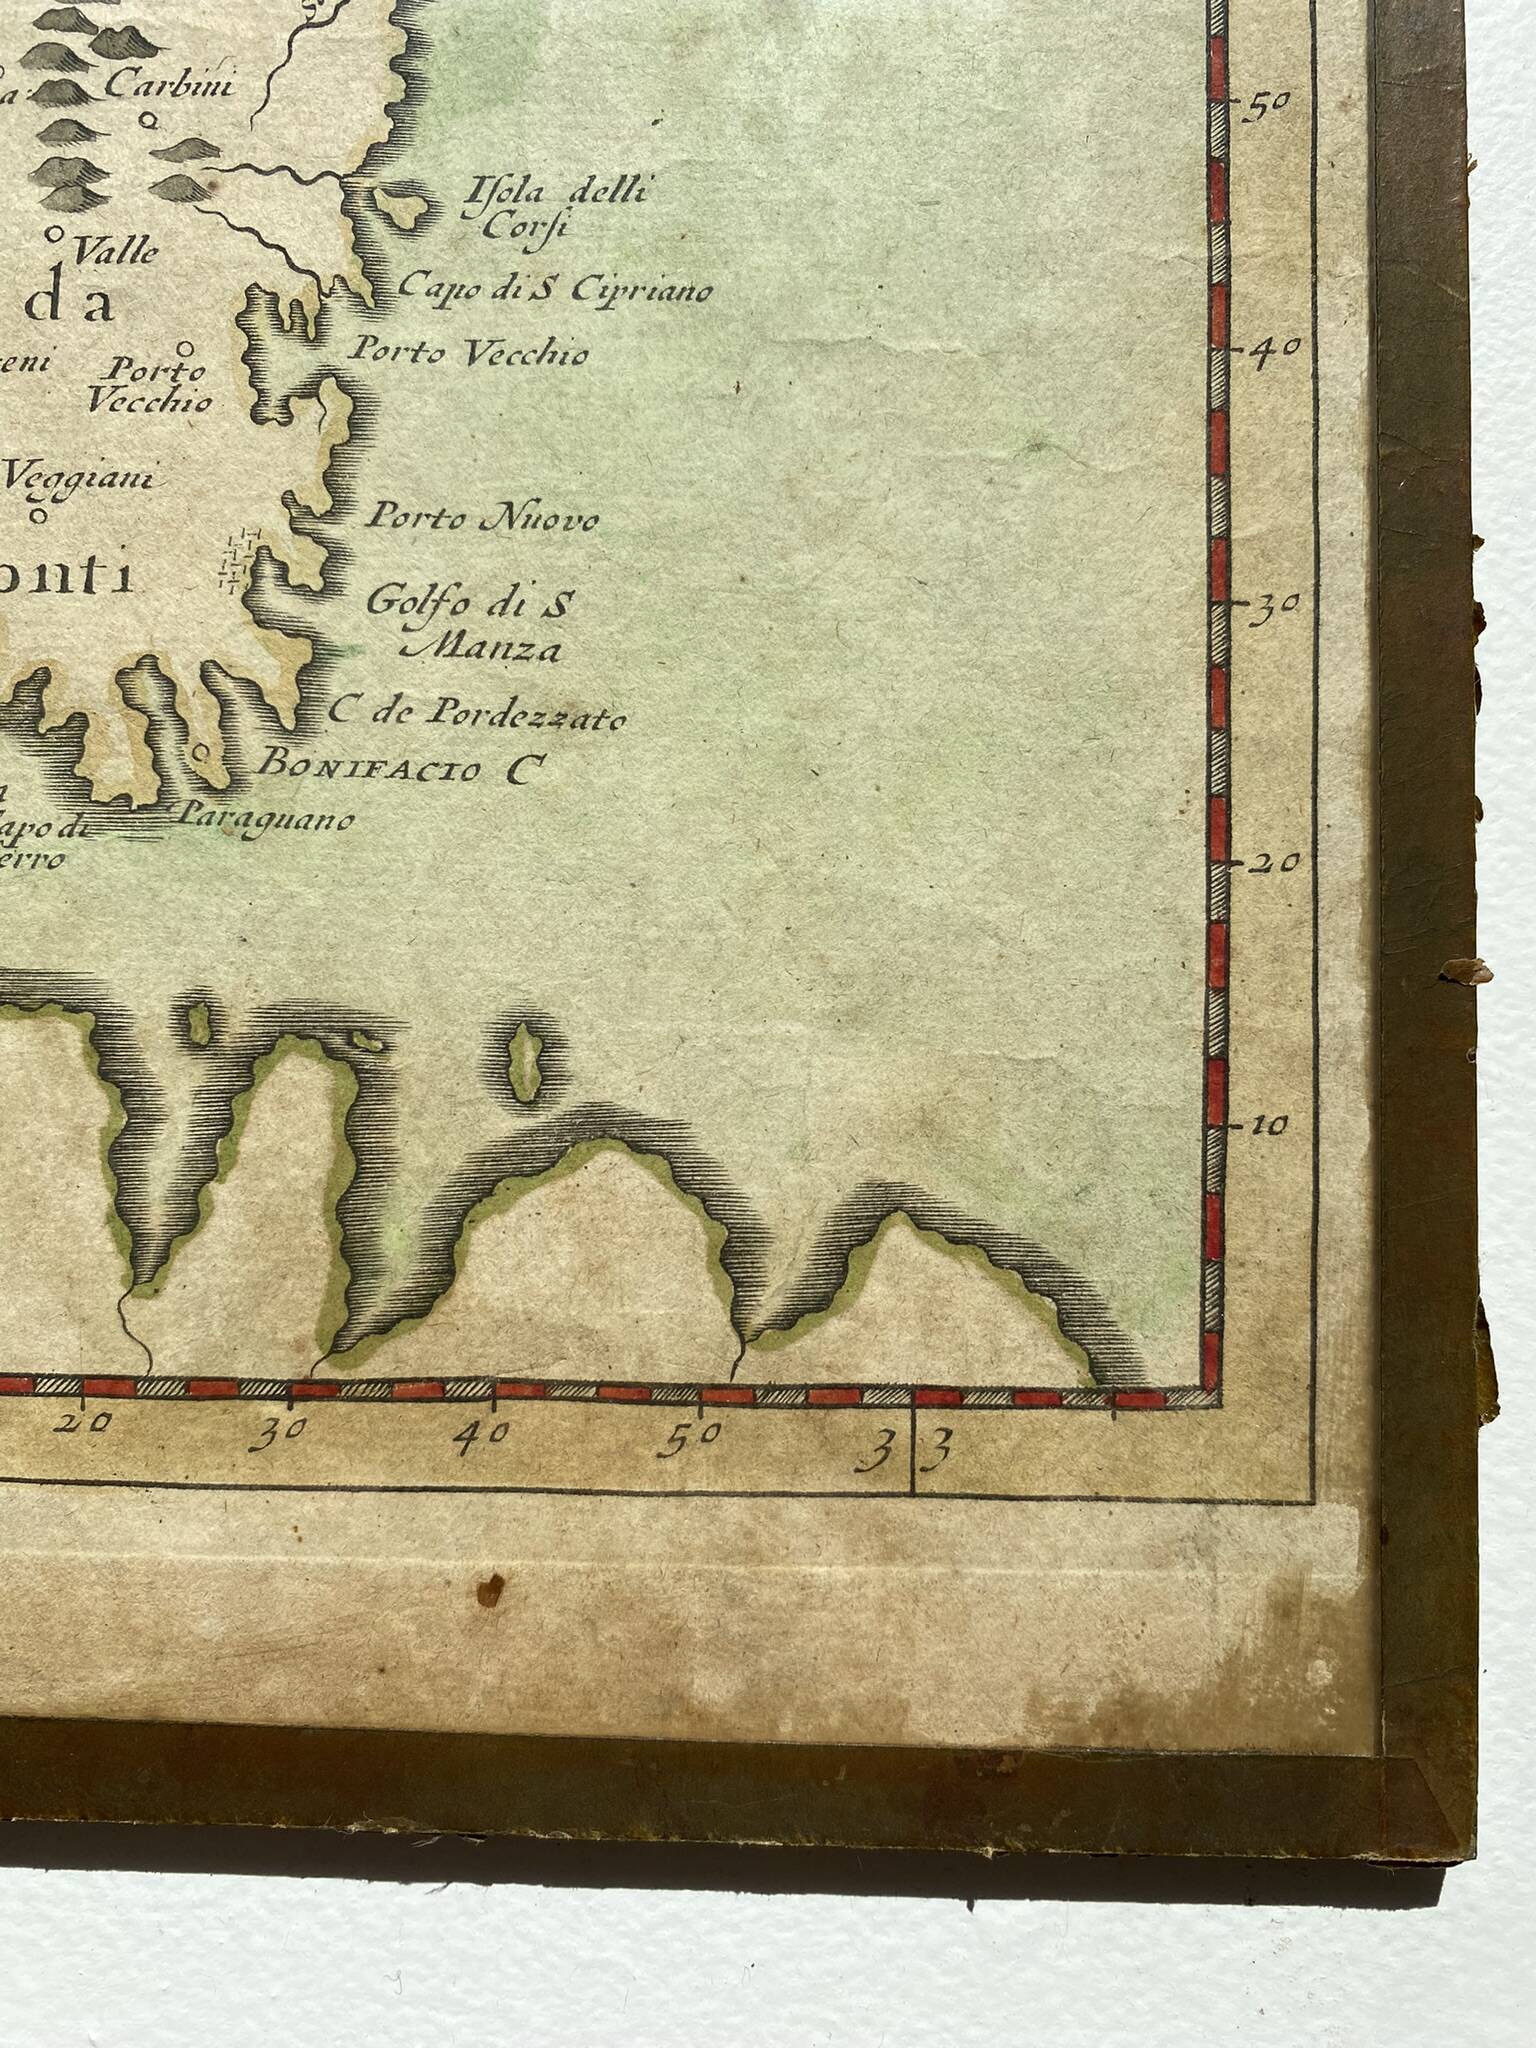 Carbini
50
Iſola delli
Corſi
Valle
Capo di S Cipriano
da
Porto Vecchio
40
Porto
Vecchio
Veggiani
Porto Nuovo
onti
Golfo di S
Manza
30
C de Pordezzato
BONIFACIO C
Paraguano
apo di
erro
20
10
20
30
40
50
3
3